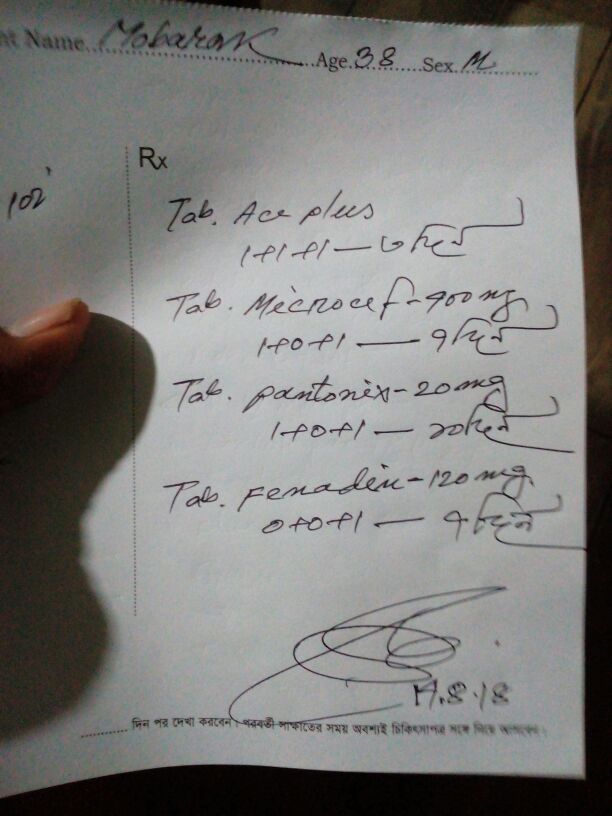 nt Name Mobarak Age 38 Sex M
102
Rx
Tab. Ace plus
1+1+1 — ৩ দিন
Tab. Microcef - 400 mg
1+0+1 — ৭ দিন
Tab. Pantonix - 20 mg
1+0+1 — ২০ দিন
Tab. Fenadin - 120 mg
0+0+1 — ৭ দিন
.8.18
দিন পর দেখা করবেন। পরবর্তী সাক্ষাতের সময় অবশ্যই চিকিৎসাপত্র সঙ্গে নিয়ে আসবেন।